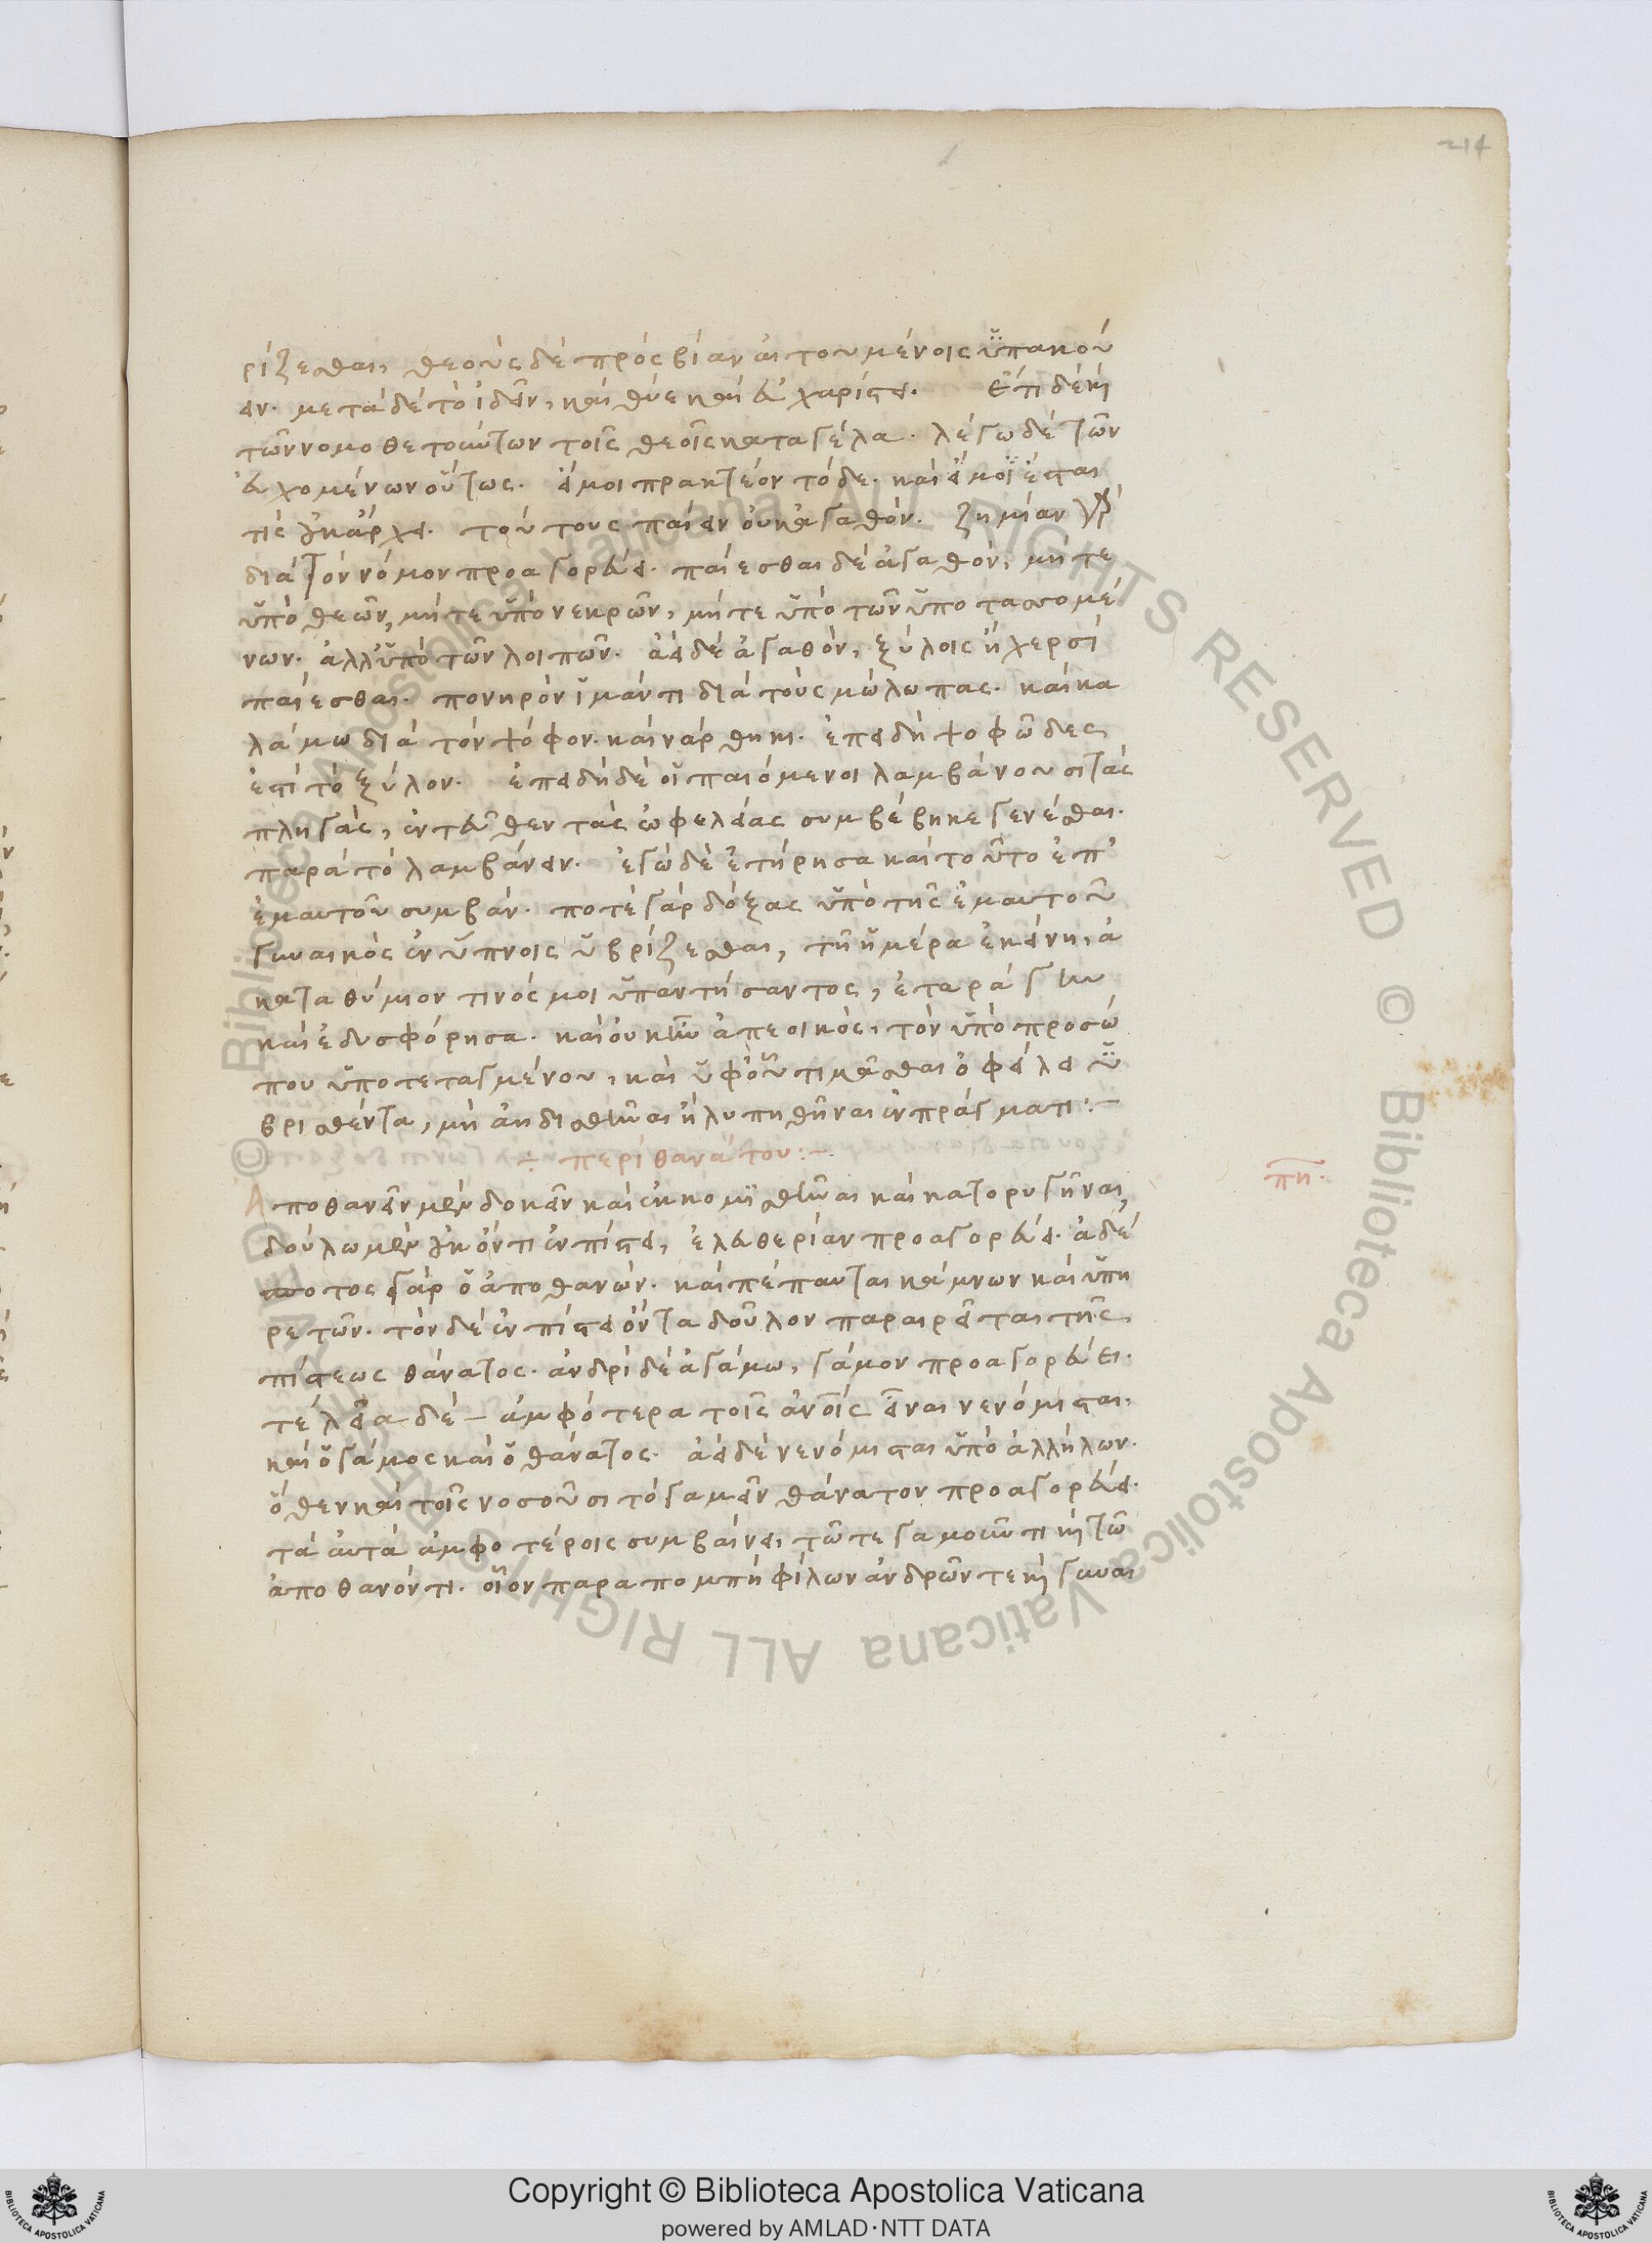 214
ρίζεσθαι, θεοὺς δὲ πρὸς βίαν αἰτουμένοις ὑπακού
ειν. μετὰ δὲ τὸ ἰδεῖν, καὶ θύε καὶ εὐχαρίστει. Ἔτι δὲ καὶ
τῶν νομοθετούντων τοῖς θεοῖς καταγέλα. λέγω δὲ τῶν
εὐχομένων οὕτως. εἴ μοι πρακτέον τόδε. καὶ εἴ μοι ἔσται
τις ἐν ἀρχῇ. τούτους παίειν οὐκ ἀγαθόν. ζημίαν γὰρ
διὰ τὸν νόμον προαγορεύει. παίεσθαι δὲ ἀγαθόν, μήτε
ὑπὸ θεῶν, μήτε ὑπὸ νεκρῶν, μήτε ὑπὸ τῶν ὑποτασσομέ
νων. ἀλλ' ὑπὸ τῶν λοιπῶν. ἀεὶ δὲ ἀγαθόν, ξύλοις ἢ χερσὶ
παίεσθαι. πονηρὸν ἱμάντι διὰ τοὺς μώλωπας. καὶ κα
λάμω διὰ τὸν ψόφον. καὶ νάρθηκι. ἐπειδὴ ψοφῶδες
ἐστὶ τὸ ξύλον. ἐπειδὴ δὲ οἱ παιόμενοι λαμβάνουσι τὰς
πληγὰς, ἐντεῦθεν τὰς ὠφελείας συμβέβηκε γενέσθαι.
παρὰ τὸ λαμβάνειν. ἐγὼ δὲ ἐτήρησα καὶ τοῦτο ἐπ'
ἐμαυτοῦ συμβάν. ποτὲ γὰρ δόξας ὑπὸ τῆς ἐμαυτοῦ
γυναικὸς ἐν ὕπνοις ὑβρίζεσθαι, τῇ ἡμέρα ἐκείνῃ, ἀ
καταθύμιον τινός μοι ὑπαντήσαντος, ἐταράγην
καὶ ἐδυσφόρησα. καὶ οὐκ ἦν ἀπεοικὸς, τὸν ὑπὸ προσώ
που ὑποτεταγμένου, καὶ ὑφ' οὗ τιμᾶσθαι ὀφείλει ὑ
βρισθέντα, μὴ ἀηδισθῆναι ἢ λυπηθῆναι ἐν πράγματι:–
÷ περὶ θανάτου:–
πη.
Ἀποθανεῖν μὲν δοκεῖν καὶ ἐκκομισθῆναι καὶ κατορυγῆναι,
δούλω μὲν ἐκόντι ἐν πίστει, ἐλευθερίαν προαγορεύει. ἀδέ
σποτος γὰρ ὁ ἀποθανών. καὶ πέπαυται κάμνων καὶ ὑπη
ρετῶν. τὸν δὲ ἐν πίστει ὄντα δοῦλον παραιρεῖται τῆς
πίστεως θάνατος. ἀνδρὶ δὲ ἀγάμω, γάμον προαγορεύει.
τέλεια δὲ – ἀμφότερα τοῖς ἀνοῖς εἶναι νενόμισται.
καὶ ὁ γάμος καὶ ὁ θάνατος. ἀεὶ δὲ νενόμισται ὑπὸ ἀλλήλων.
ὅθεν καὶ τοῖς νοσοῦσι τὸ γαμεῖν θάνατον προαγορεύει.
τὰ αὐτὰ ἀμφοτέροις συμβαίνει, τῶ τε γαμοῦντι καὶ τῶ
ἀποθανόντι. οἷον παραπομπὴ φίλων ἀνδρῶν τε καὶ γυναι
Copyright © Biblioteca Apostolica Vaticana
powered by AMLAD·NTT DATA